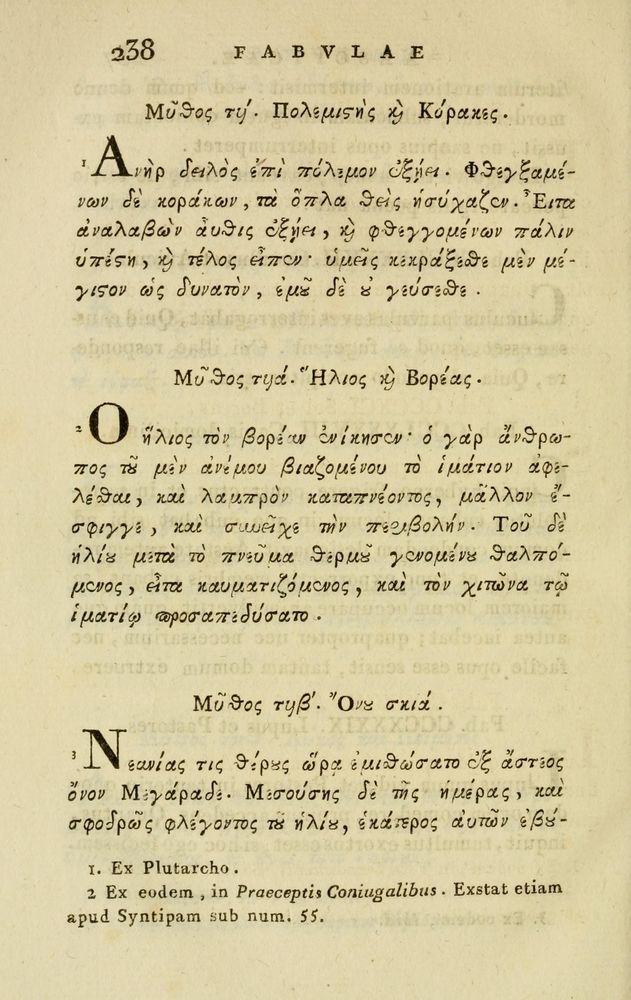 238 FABVLAE
Μῦθος τιʹ. Πολεμιστὴς ϗ Κόρακες.
¹ Ἀνὴρ δειλὸς ἐπὶ πόλεμον ἐξῄει. Φθεγξαμέ-
νων δὲ κοράκων, τὰ ὅπλα θεὶς ἡσύχαζεν. Εἶτα
ἀναλαβὼν αὖθις ἐξῄει, ϗ φθεγγομένων πάλιν
ὑπέστη, ϗ τέλος εἶπεν· ὑμεῖς κεκράξεσθε μὲν μέ-
γιστον ὡς δυνατὸν, ἐμοῦ δὲ οὐ γεύσεσθε.
Μῦθος τιάʹ. Ἥλιος ϗ Βορέας.
² Ὁ ἥλιος τὸν βορέαν ἐνίκησεν· ὁ γὰρ ἄνθρω-
πος τοῦ μὲν ἀνέμου βιαζομένου τὸ ἱμάτιον ἀφε-
λέσθαι, καὶ λαμπρὸν καταπνέοντος, μᾶλλον ἔ-
σφιγγε, καὶ συνεῖχε τὴν περιβολήν. Τοῦ δὲ
ἡλίου μετὰ τὸ πνεῦμα θερμοῦ γενομένου θαλπό-
μενος, εἶτα καυματιζόμενος, καὶ τὸν χιτῶνα τῷ
ἱματίῳ προσαπεδύσατο.
Μῦθος τιβʹ. Ὄνου σκιά.
³ Νεανίας τις θέρους ὥρᾳ ἐμισθώσατο ἐξ ἄστεος
ὄνον Μέγαράδε. Μεσούσης δὲ τῆς ἡμέρας, καὶ
σφοδρῶς φλέγοντος τοῦ ἡλίου, ἑκάτερος αὐτῶν ἐβού-
1. Ex Plutarcho.
2 Ex eodem, in Praeceptis Coniugalibus. Exstat etiam
apud Syntipam sub num. 55.